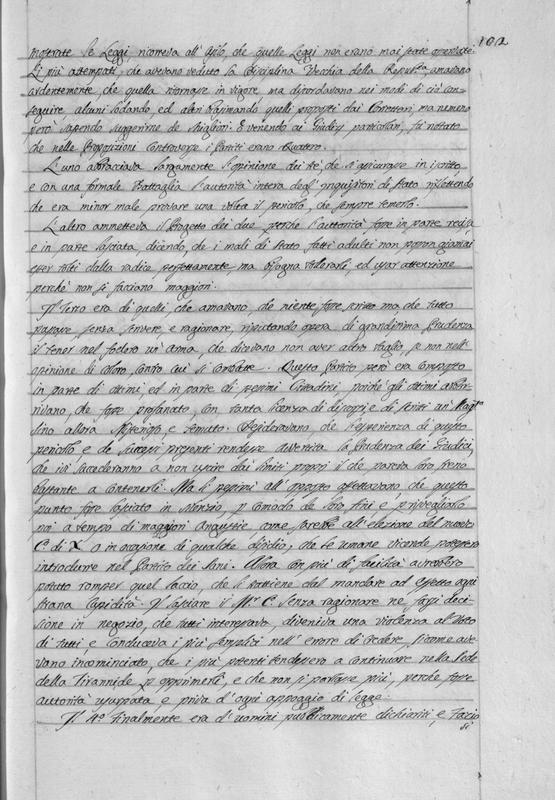 102
mostrate le Leggi, ricorreva all' Asilo, che quelle Leggi non erano mai state osservate.
Li più attempati, che avevano veduto la Disciplina Vecchia della Repub.ca amavano
ardentemente, che quella ritornasse in vigore, ma discordavano nei modi di ciò con-
seguire, alcuni lodando, ed altri biasimando quelli proposti dai Corettori, ma nemeno
però sapendo suggerirne de migliori. E venendo ai Giudizj particolari, fù notato
che nelle Proposizioni Controverse i Partiti erano quattro.
L' uno abbracciava largamente l' opinione dei tre, che si assicurasse in iscritto
e con una formale Battaglia l' autorità intera degl' Inquisitori di Stato riflettendo
che era minor male provare una volta il pericolo, che sempre temerlo.
L' altro ammetteva il Progetto dei due, perchè l' autorità fosse in parte recisa
e in parte lasciata, dicendo, che i mali di Stato fatti adulti non ponno giammai
esser tolti dalla radice perfettamente, ma bisogna tollerarli ed usar attenzione
perchè non si facciano maggiori.
Il Terzo era di quelli, che amavano, che niente fosse scritto, ma che tutto
passasse senza scrivere e ragionare, riputando opera di grandissima Prudenza
il tener nel fodero un' Arma, che dicevano non aver altro taglio, se non nell'
opinione di coloro, contro cui si combatte. Questo Partito però era composto
in parte di ottimi ed in parte di pessimi Cittadini, poichè gli ottimi aborri-
rivano, che fosse profanato, con tanta licenza di discorsi e di scritti un' Mag.to
sino allora Misterioso e temuto. Desideravano, che l' esperienza di questo
pericolo e de successi presenti rendesse avvertita la Prudenza dei Giudici,
che ivi succederanno a non uscire dai limiti proprj il che pareva loro freno
bastante a contenerli. Ma li pessimi all' opposto affettavano che questo
punto fosse lasciato in silenzio, p comodo de loro fini e p risvegliarlo
poi a tempo di maggiori Angustie come sarebbe all' elezione del nuovo
C. di X. o in occasione di qualche disidio, che le umane vicende potessero
introdurre nel Partito dei Sani. Allora con più di facilità avrebbero
potuto romper quel laccio, che li trattiene dal mandare ad effetto ogni
strana Cupidità. Il lasciare il M.r C. senza ragionare nè farsi deci-
sione in negozio, che tutti interessava, diveniva una violenza all' Voto
di tutti e conduceva i più semplici nell' errore di credere, siccome ave-
vano incominciato, che i più potenti tendessero a continuare nella Sede
della Tirannide p opprimerli, e che non si parlasse più, perchè fosse
autorità usurpata e priva d' ogni appoggio di legge.
Il 4.o finalmente era d' uomini pubblicamente dichiariti, e Fazio
si